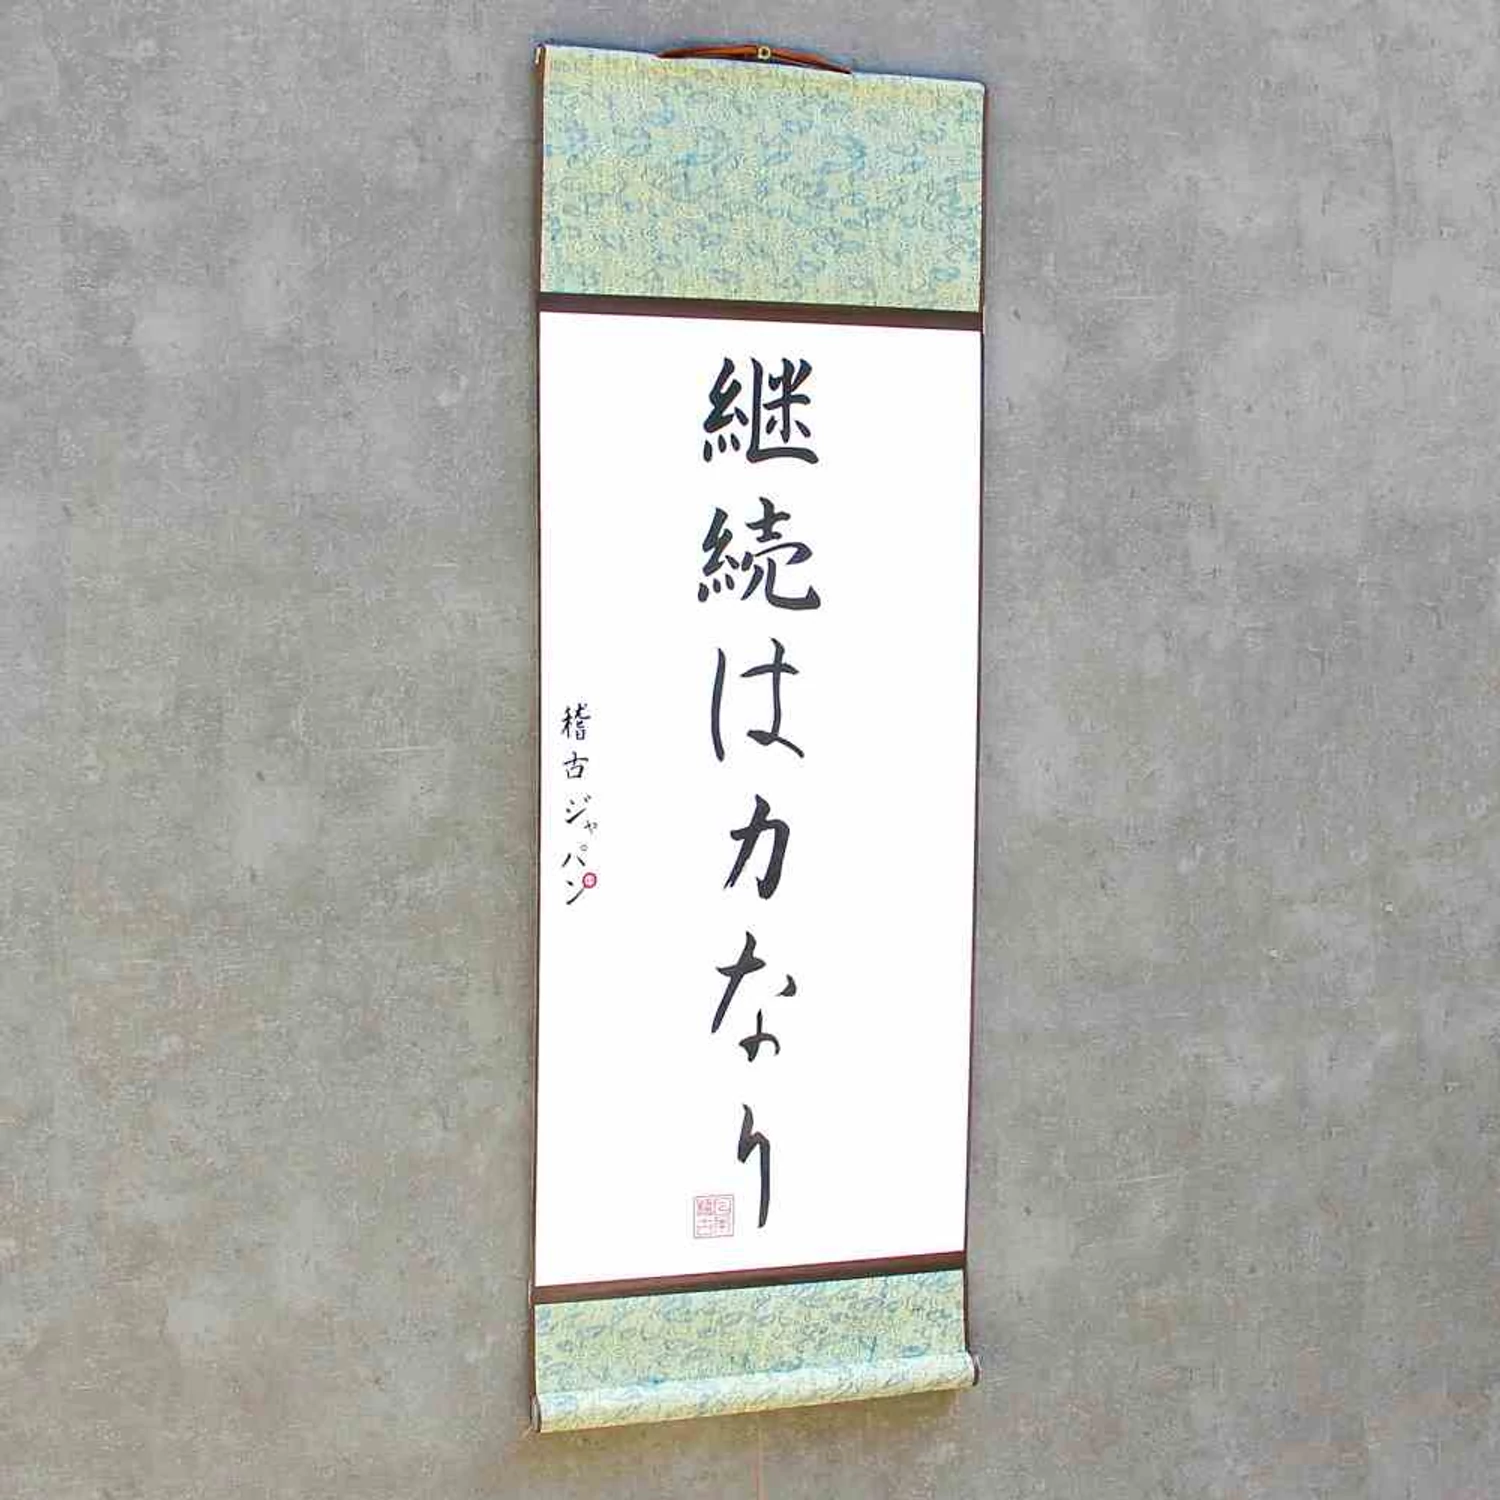 継続は力なり
稽古ジャパン